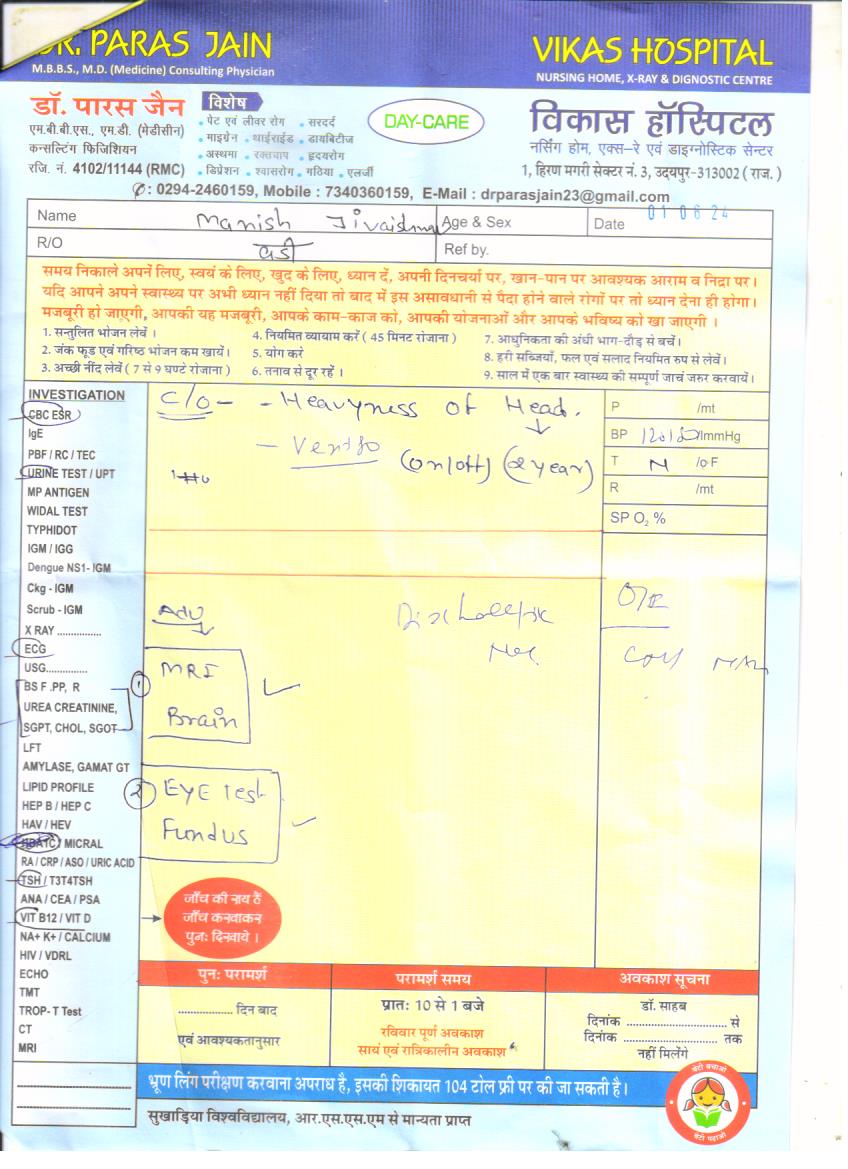 DR. PARAS JAIN
M.B.B.S., M.D. (Medicine) Consulting Physician
VIKAS HOSPITAL
NURSING HOME, X-RAY & DIGNOSTIC CENTRE
डॉ. पारस जैन
एम.बी.बी.एस., एम.डी. (मेडीसीन)
कन्सल्टिंग फिजिशियन
रजि. नं. 4102/11144 (RMC)
विशेष
• पेट एवं लीवर रोग • सरदर्द
• माइग्रेन • थाईराईड • डायबिटीज
• अस्थमा • रक्तचाप • हृदयरोग
• डिप्रेशन • श्वासरोग • गठिया • एलर्जी
DAY-CARE
विकास हॉस्पिटल
नर्सिंग होम, एक्स-रे एवं डाइग्नोस्टिक सेन्टर
1, हिरण मगरी सेक्टर नं. 3, उदयपुर-313002 ( राज. )
✆: 0294-2460159, Mobile : 7340360159, E-Mail : drparasjain23@gmail.com
Name Manish Age & Sex Date 01 06 24
R/O Ref by.
समय निकाले अपनें लिए, स्वयं के लिए, खुद के लिए, ध्यान दें, अपनी दिनचर्या पर, खान-पान पर आवश्यक आराम व निद्रा पर।
यदि आपने अपने स्वास्थ्य पर अभी ध्यान नहीं दिया तो बाद में इस असावधानी से पैदा होने वाले रोगों पर तो ध्यान देना ही होगा।
मजबूरी हो जाएगी, आपकी यह मजबूरी, आपके काम-काज को, आपकी योजनाओं और आपके भविष्य को खा जाएगी ।
1. सन्तुलित भोजन लेवें ।
2. जंक फूड एवं गरिष्ठ भोजन कम खायें।
3. अच्छी नींद लेवें ( 7 से 9 घण्टे रोजाना )
4. नियमित व्यायाम करें ( 45 मिनट रोजाना )
5. योग करे
6. तनाव से दूर रहें ।
7. आधुनिकता की अंधी भाग-दौड़ से बचें।
8. हरी सब्जियाँ, फल एवं सलाद नियमित रुप से लेवें।
9. साल में एक बार स्वास्थ्य की सम्पूर्ण जाचं जरुर करवायें।
INVESTIGATION
CBC ESR
IgE
PBF / RC / TEC
URINE TEST / UPT
MP ANTIGEN
WIDAL TEST
TYPHIDOT
IGM / IGG
Dengue NS1- IGM
Ckg - IGM
Scrub - IGM
X RAY ................
ECG
USG..............
BS F .PP, R
UREA CREATININE,
SGPT, CHOL, SGOT
LFT
AMYLASE, GAMAT GT
LIPID PROFILE
HEP B / HEP C
HAV / HEV
HBATC / MICRAL
RA / CRP / ASO / URIC ACID
TSH / T3T4TSH
ANA / CEA / PSA
VIT B12 / VIT D
NA+ K+ / CALCIUM
HIV / VDRL
ECHO
TMT
TROP- T Test
CT
MRI
C/O - - Heavyness of Head.
- Vertigo (on/off) (2 year)
P /mt
BP 120/80/ImmHg
T N /o F
R /mt
SP O₂ %
O/E
Adv
1 MRI
Brain
2 EYE Test
Fundus
जाँच की राय हैं
जाँच करवाकर
पुनः दिखाये ।
पुनः परामर्श
.................. दिन बाद
एवं आवश्यकतानुसार
परामर्श समय
प्रातः 10 से 1 बजे
रविवार पूर्ण अवकाश
सायं एवं रात्रिकालीन अवकाश
अवकाश सूचना
डॉ. साहब
दिनांक .............................. से
दिनांक ............................ तक
नहीं मिलेंगे
भ्रूण लिंग परीक्षण करवाना अपराध है, इसकी शिकायत 104 टोल फ्री पर की जा सकती है।
सुखाड़िया विश्वविद्यालय, आर.एस.एस.एम से मान्यता प्राप्त
बेटी बचाओ
बेटी पढ़ाओ